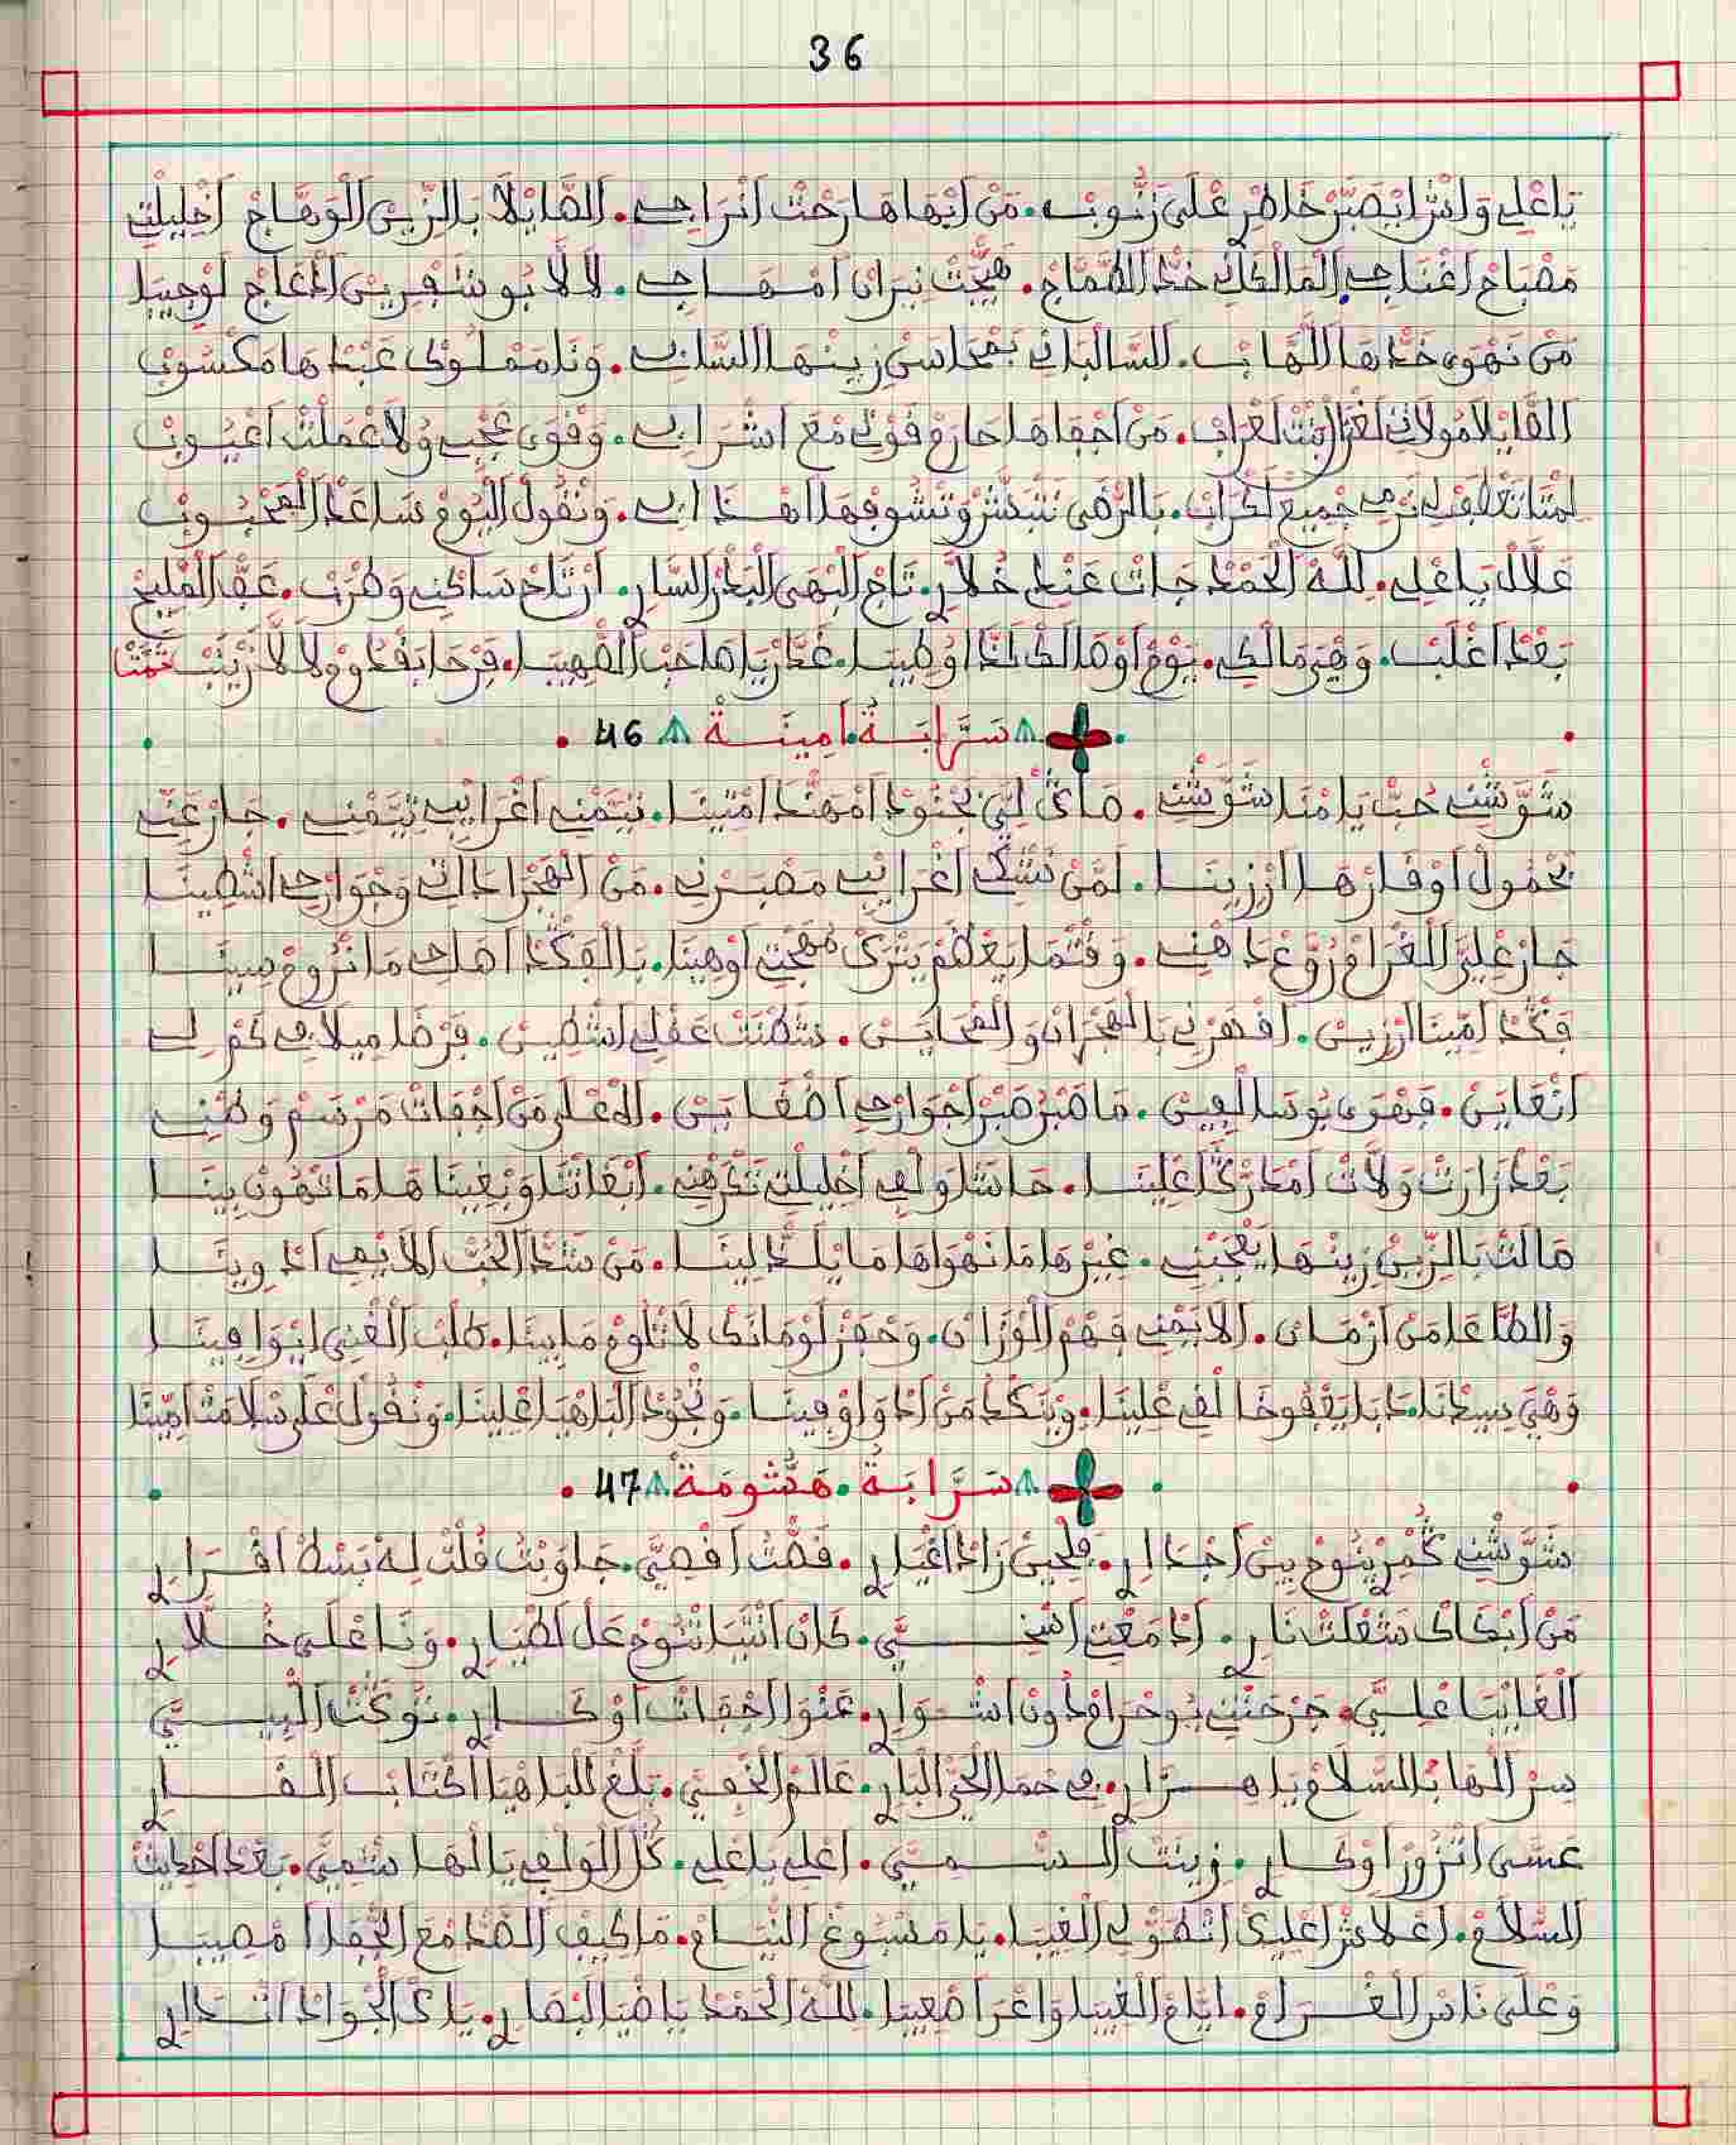 36
يَاعْلِي وَاشْ ايْصَبَّرْ خَاطِرِ عْلَى زَنُّوبْ. مَنْ ابْهَاهَا رَحْتْ انْرَاجِي. الطَّايْلَا بَالزِّينْ الْوَهَّاجْ اخْلِيلْتِي
مَصْبَاحْ اغْنَاجِي الْمَالْكَانِي خَدّْ الطَّمَّاجْ. هَيّْجَتْ نِيرَانْ امْهَاجِي. لَالَّا بُو شَفْرِينْ ادْعَاجْ لَوْجِيبَا
مَنْ نَهْوَى خَدّْهَا اللَّهَّابْ. السَّالْبَانِي بَمْحَاسَنْ زِينْهَا السَّابِي. وَنَا مَمْلُوكْ عَبْدْهَا مَكْسُوبْ
الْقَايْلَا مُولَاتِي لَغْزَالْ بَنْتْ لَعْرَابْ. مَنْ اجْفَاهَا حَارَمْ قُوتِي مْعَ اشْرَابِي. وَقْوَى عَجْبِي وُلَا عْمَلْتْ اعْيُوبْ
لَمْتَا تَعْطَفْ لِي تَرْمِي جْمِيعْ لَكْرَابْ. بَالرّْضَى نَتْبَشَّرْ وَنْشُوفْهَا اهْذَابِي. وَنْقُولْ الْيُومْ سَاعَدْ الْمَحْبُوبْ
عَلَّالْ يَاعْلِي. لِلَّهْ الْحَمْدْ جَاتْ عَنْدِي خُلَّارِ. تَاجْ الْبْهَى الْبَدْرْ السَّارِ. ارْتَاحْ سَاكْنِي وَطْرَبْ. عَقْلْ الْمْلِيحْ
بَعْدْ اغْلَبْ. وَهِيَ مَالْكِي. يُومْ اوْصَالْكْ لَذَّا اوْطِيبَا. غَدَّرْ يَا صَاحَبْ الصّْهِيبَا. فَرْحَا بَقْدُومْ لَالَّا زَيْنَبْ تَمَّتْ
سَرَّابَةُ. اَمِينَةْ 46
شَوّْشْنِي حُبّْ يَامْنَا شَوّْشْنِي. مَاكْ لِيَّ بَجْنُودْ امْهَنَّدْ امْتِينَا. تَيَّمْنِي اغْرَايْبِي تَيَّمْنِي. جَارْ عَنِّي
بَحْمُولْ اوْقَارْهَا ارْزِينَا. لَمَّنْ نَشْكِي اغْرَايْبِي مَصْبَرْنِي. مَنْ الْهَجْرَا دَاتِي وَجْوَارْحِي اشْطِينَا
جَارْ عْلِيَّ الْغْرَامْ رَوَّعْ دَهْنِي. وَقْتْمَا يَعْظَمْ يَتْرَكْ مُهْجْتِي اوْهِينَا. بَالْفَكْدْ اصْلَحِي مَا نْرُومْ سِينَا
فَكْدْ امِّينَا ارْزِينْ. افْهَرْنِي بَالْهَجْرَانْ وَالْمْحَايَنْ. شَطْنَتْ عَقْلِي اشْطِينْ. فَرْضَا مِيلَافِي كَفْرْ لِي
انْعَايَنْ. فَهْوَى بُوسَالْفِينْ. مَا صْبَرْ صْبَرْ اجْوَارْحِي اضْغَايَنْ. الَّا عْلَى مَنْ اجْفَاتْ مَرْسَمْ وَطْنِي
بَعْدْ زَارَتْ وَلَّاتْ امْدَرّْكَا عْلِينَا. حَاشَا وَلْفِي اخْلِيلْتِي تَكْرَهْنِي. ابْغَاتْنَا وَبْغِينَاهَا مَا تْهُونْ بِينَا
مَالَتْ بَالزِّينْ زِينْهَا يَعْجَبْنِي. غِيرْهَا مَا نَهْوَاهَا مَا يْلَدّْ لِينَا. مَنْ شَدّْ الْحُبّْ الَّا يْفِي ادْوِينَا
وَالطَّاعَا مَنْ ازْمَانْ. الَا يَمْنِي فَهْمْ الْوْزَانْ. وَحْفَرْ لُومَانَكْ لَا تْلُومْ مَا بِينَا. طْلَبْ الْغْنِي ايْوَافِينَا
وَهْيَ سِيدْنَا. دَابَا يَعْفُو خَالْقِي عْلِينَا. وِيْنَكَّدْ مَنْ ادْوَا وْفِينَا. وَتْجُودْ الْبَاهْيَا عْلِينَا. وَنْقُولْ عْلَى سْلَامَتْ امِّينَا
سَرَّابَةُ. هَشُّومَةْ 47
شَوّْشْنِي كُمْرِ يْنُوحْ بِينْ اجْدَارِ. فَلْحِينْ زَادْ اغْيَارِ. قَصّْتْ اقْصِيَّ. جَاوَبْتْ قُلْتْ لَهْ بَسْطْ اقْرَارِ
مَنْ ابْكَاكْ شَعْلَتْ نَارِ. ادَمَعْتِي اسْخِيَّ. كَانْ انْتَيَا تْنُوحْ عَلْ لَطْيَارِ. وَنَا عْلَى خُلَّارِ
الْغَايْبَا عْلِيَّ. جَرْحَتْنِي بُوحْرَامْ دُونْ اشْوَارِ. عَنْوَا اجْفَاتْ اوْكَارِ. نُوكَتْ الْبِيَّ
سِرْ الْهَا بَالسّْلَامْ يَا هِزَّارِ. فِي حْمَا الْحَيّْ الْبَارِ. عَالَمْ الْخْفِيَّ. بَلَّغْ لَلْبَاهْيَا اكْتَابْ الْقَارِ
عَسَى اتْزُورْ اوْكَارِ. زِينَتْ السّْمِيَّ. اعْلِي يَاعْلِي. كُلّْ الْوَلْفِي يَا الْهَاشْمِيَّ. بَعْدْ اخْطِيتْ
السّْلَامْ. اعْلَاشْ اعْلِيكْ اتْطُولْ الْغِيبَا. يَا مَسْبُوغْ النّْيَامْ. مَا كِيفْ الصَّدّْ مْعَ الْجْفَا امْصِيبَا
وَعْلَى نَاسْ الْغْرَامْ. ايَّامْ الْغِيبَا وَاعْرَا صْعِيبَا. لِلَّهْ الْحَمْدْ يَا ضْيَا الْبْصَارِ. يَا دْكْ الْجْوَادْ اتْدَارِ